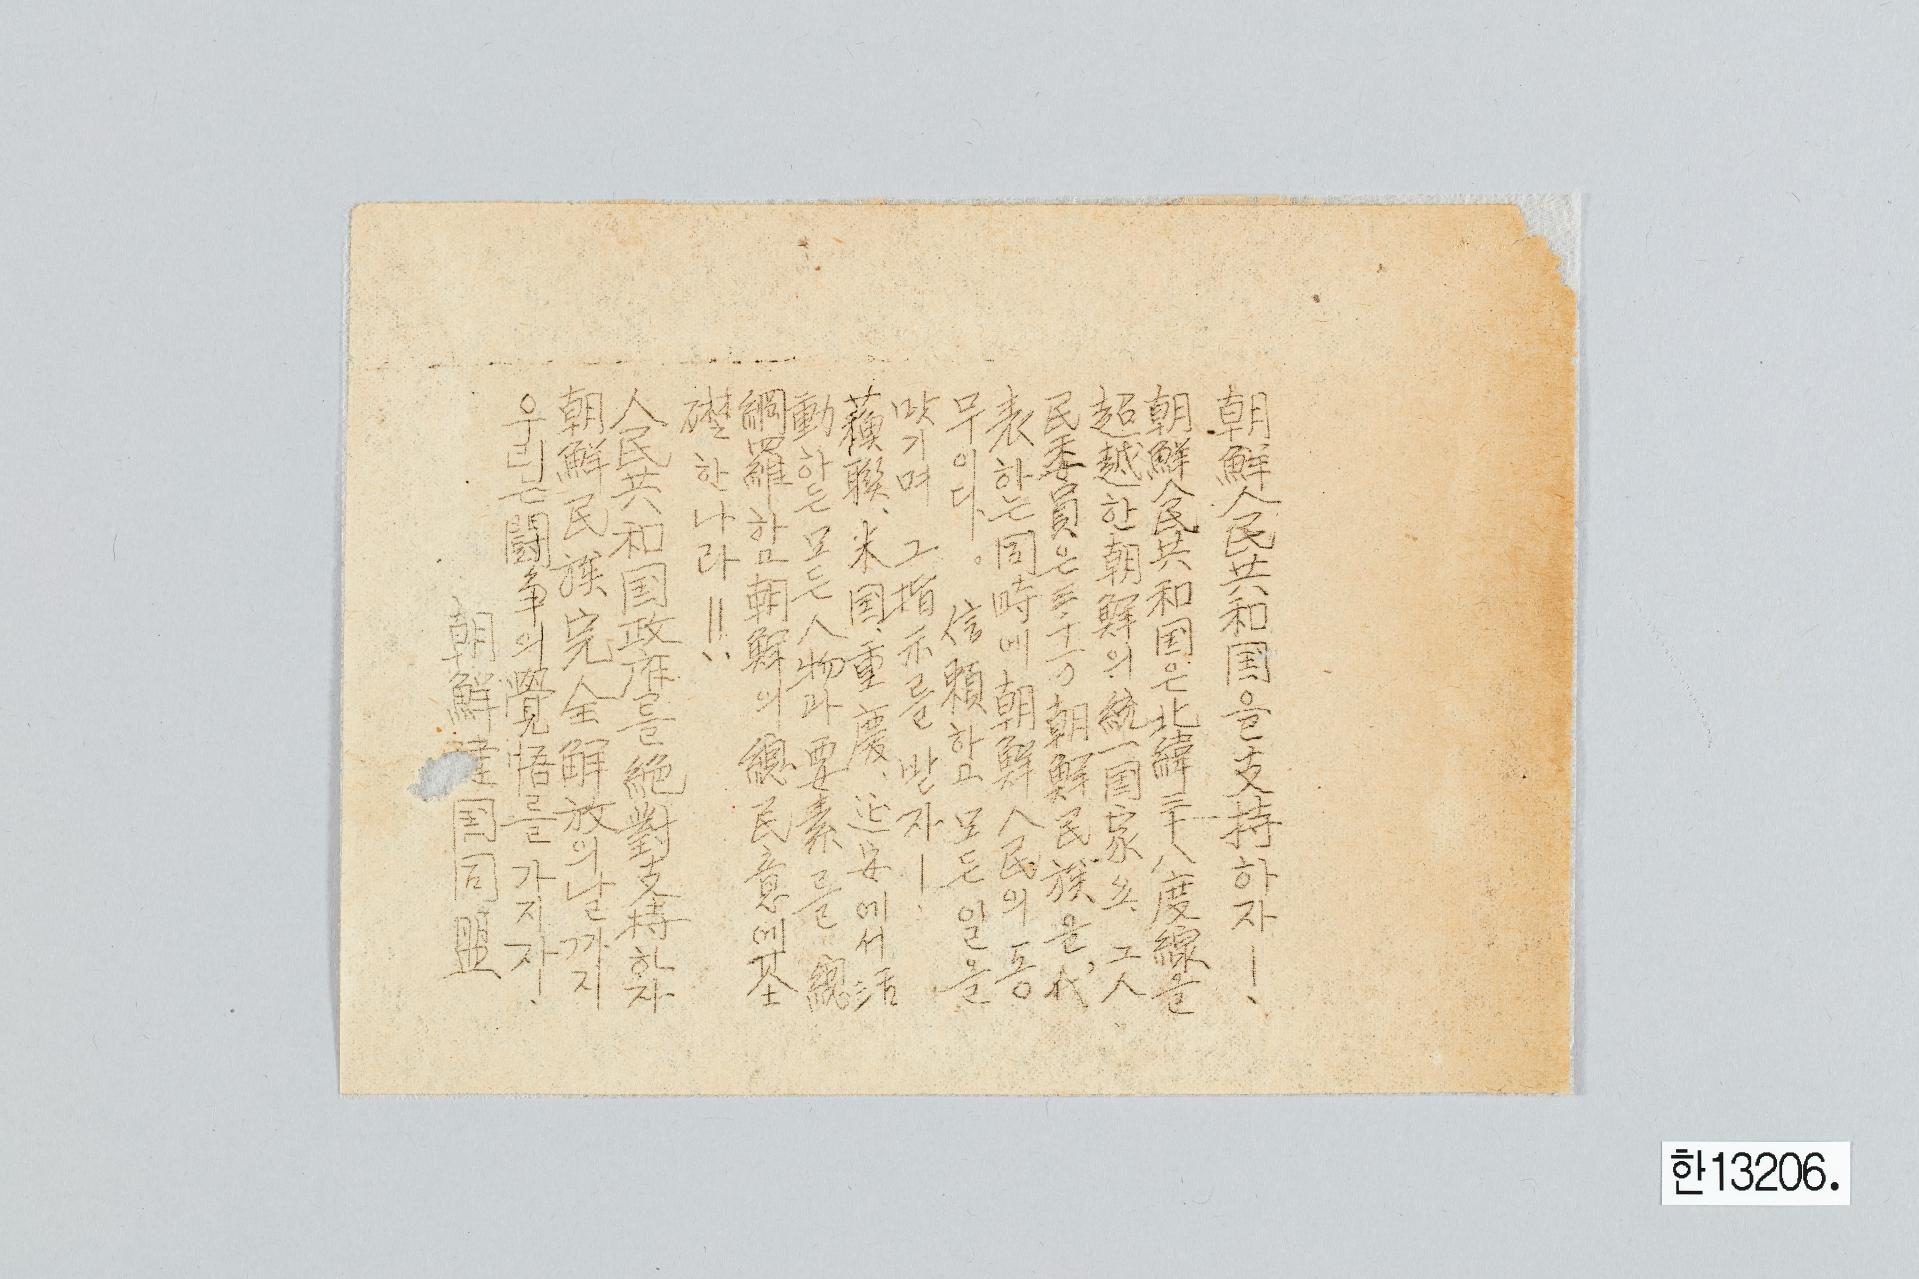 朝鮮人民共和国을支持하자ㅡ!
朝鮮人民共和国은北緯三十八度線을
超越한朝鮮의統一国家요、그人
民委員은三千万朝鮮民族을代
表하는同時에朝鮮人民의동
무이다。信賴하고모든일을
맛기며그指示를받자ㅡ!
蘇聯、米国、重慶、延安에서活
動하는모든人物과要素를總
網羅하고朝鮮의總民意에基
礎한나라!!
人民共和国政府를絶對支持하자
朝鮮民族完全解放의날까지
우리는鬪争의覺悟를가지자!
朝鮮建国同盟
한13206.